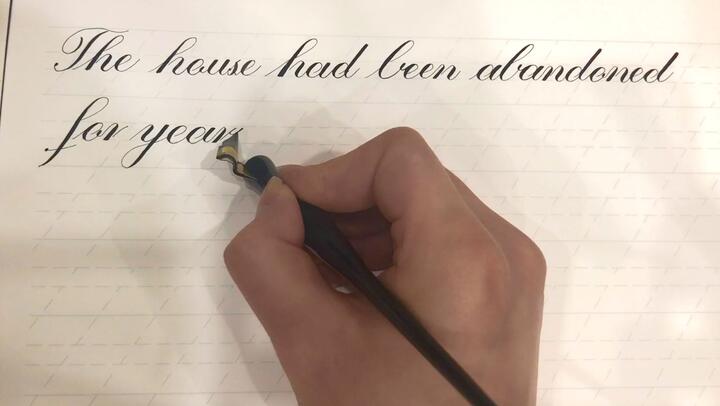 The house had been abandoned
for year